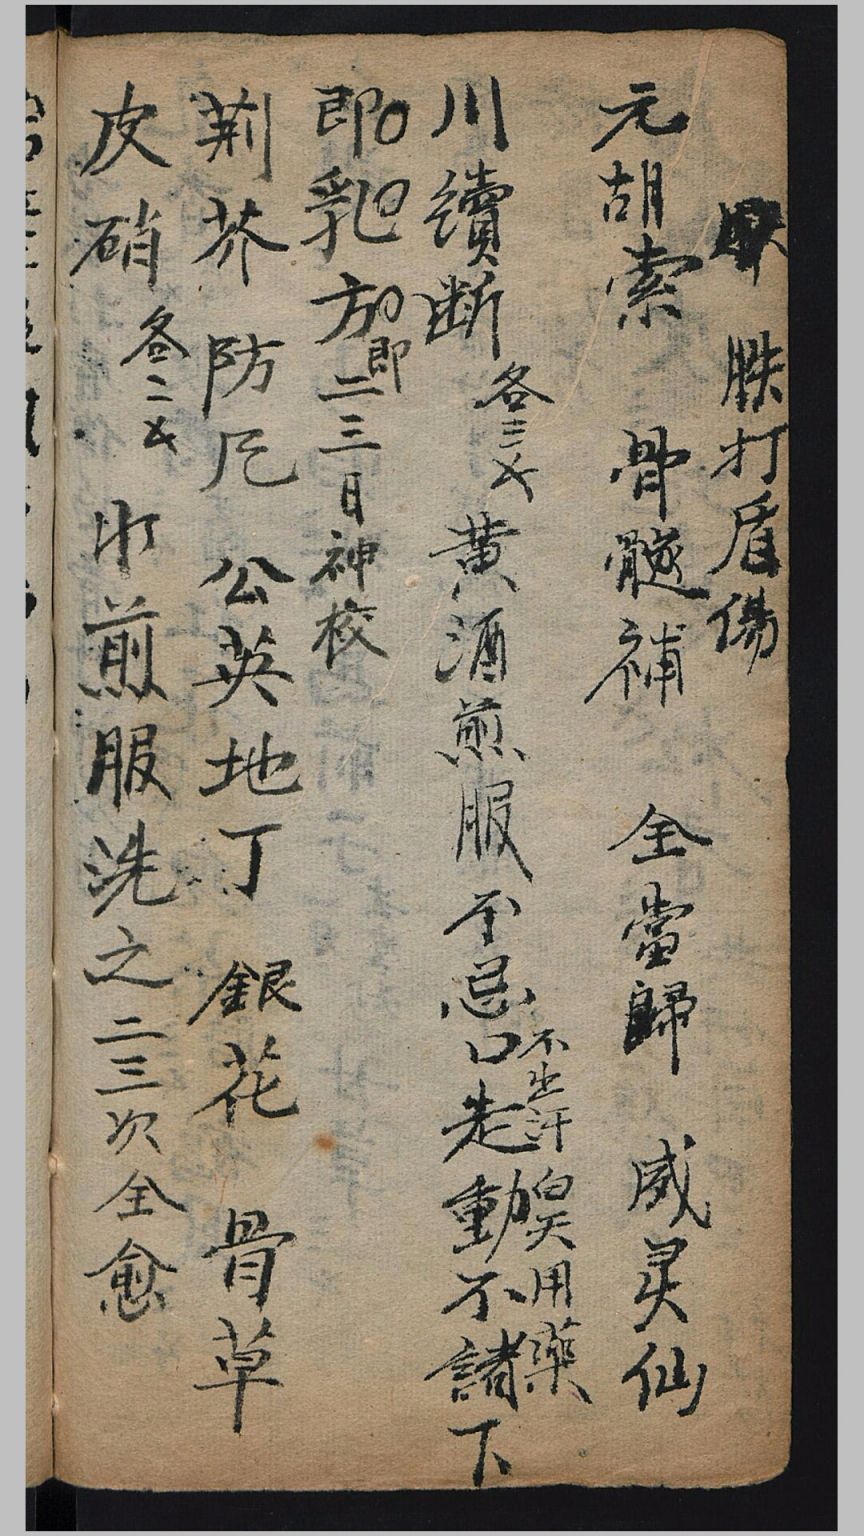 胅打盾傷
元胡索 骨髓補 全當歸 威灵仙
川續断 各三戈 黄酒煎服不忌口走動不諸下
不出汗 白天用藥
即乳方即二三日神校
荆芥 防风 公英地丁 銀花 骨草
皮硝 各二戈 水煎服洗之二三次全愈